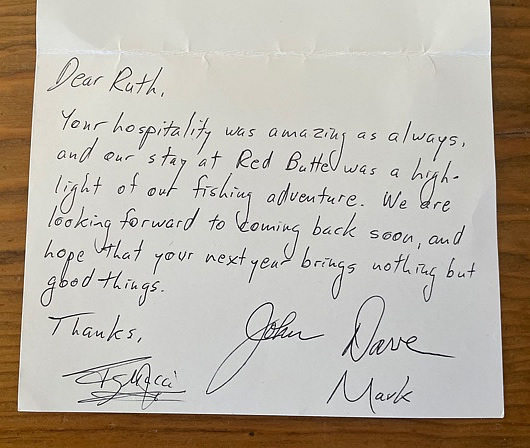 Dear Ruth,
Your hospitality was amazing as always,
and our stay at Red Butte was a high-
light of our fishing adventure. We are
looking forward to coming back soon, and
hope that your next year brings nothing but
good things.
Thanks,
John Dave
Mark